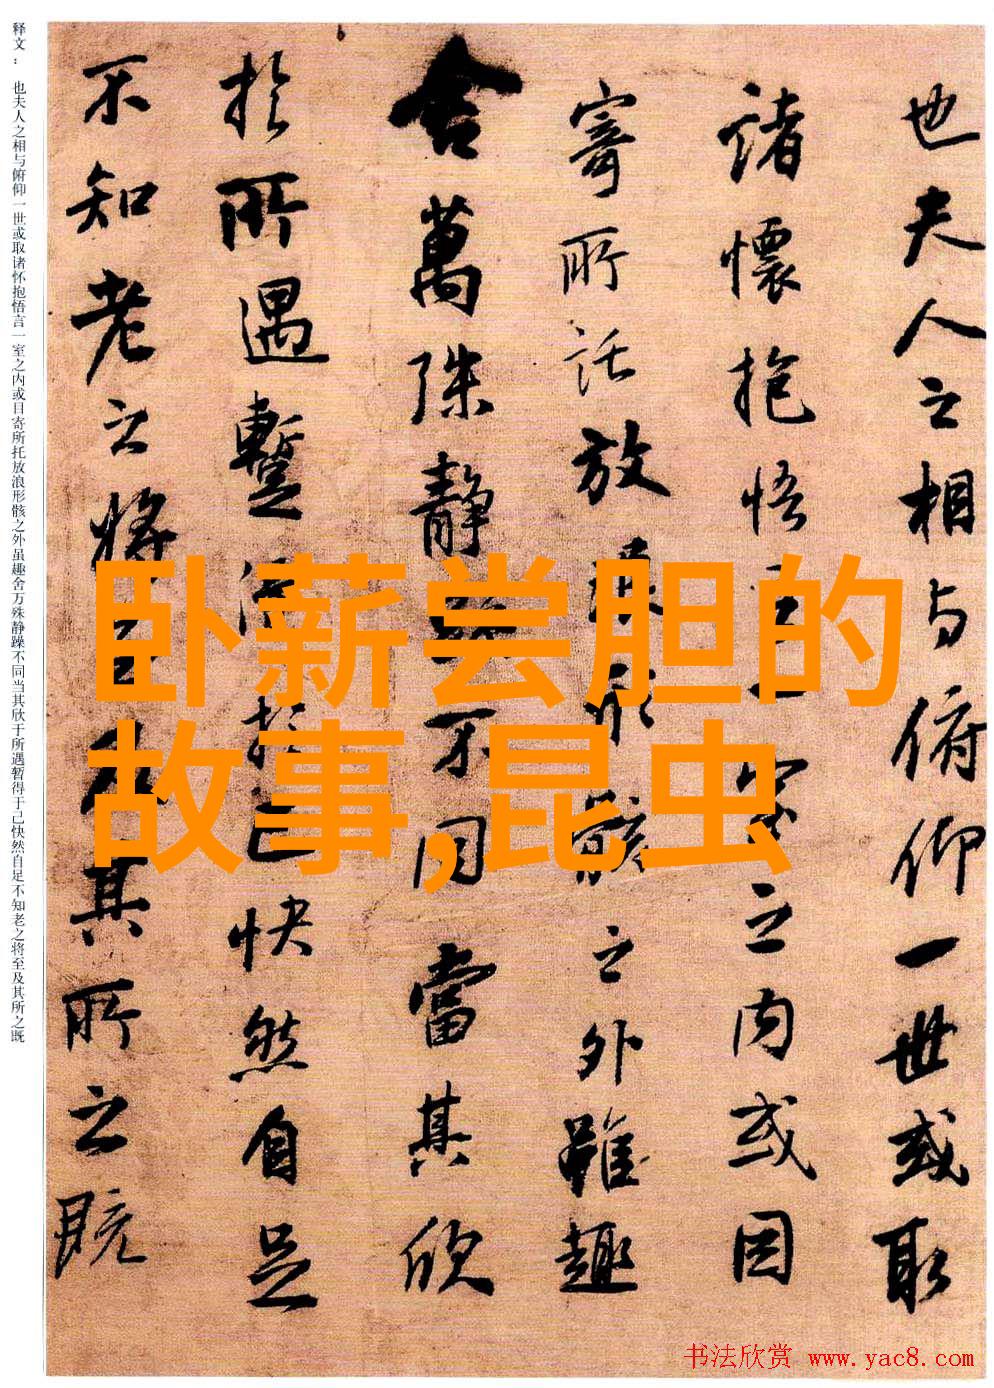 也夫人之相与俯仰一世或取
諸懷抱悟言一室之内或因
寄所託放浪形骸之外雖趣
舍萬殊静躁不同當其欣
於所遇蹔得於己快然自足
不知老之將至及其所之既
释文：也夫人之相与俯仰一世或取诸怀抱悟言一室之内或目寄所托放浪形骸之外虽趣舍万殊静躁不同当其欣于所遇暂得于己快然自足不知老之将至及其所之既
卧薪尝胆的
故事,昆虫
书法欣赏 www.yac8.com